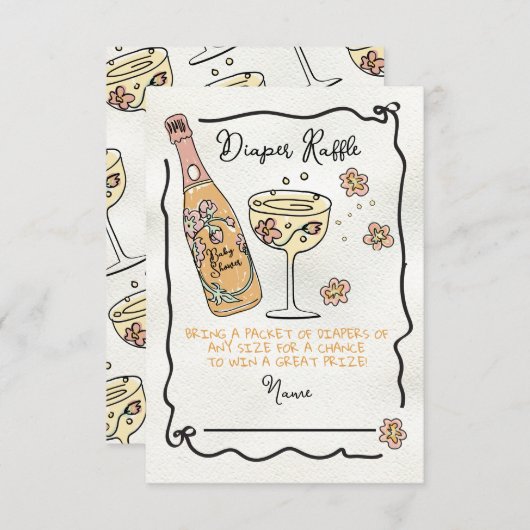 Diaper Raffle
Baby
Shower
BRING A PACKET OF DIAPERS OF
ANY SIZE FOR A CHANCE
TO WIN A GREAT PRIZE!
Name